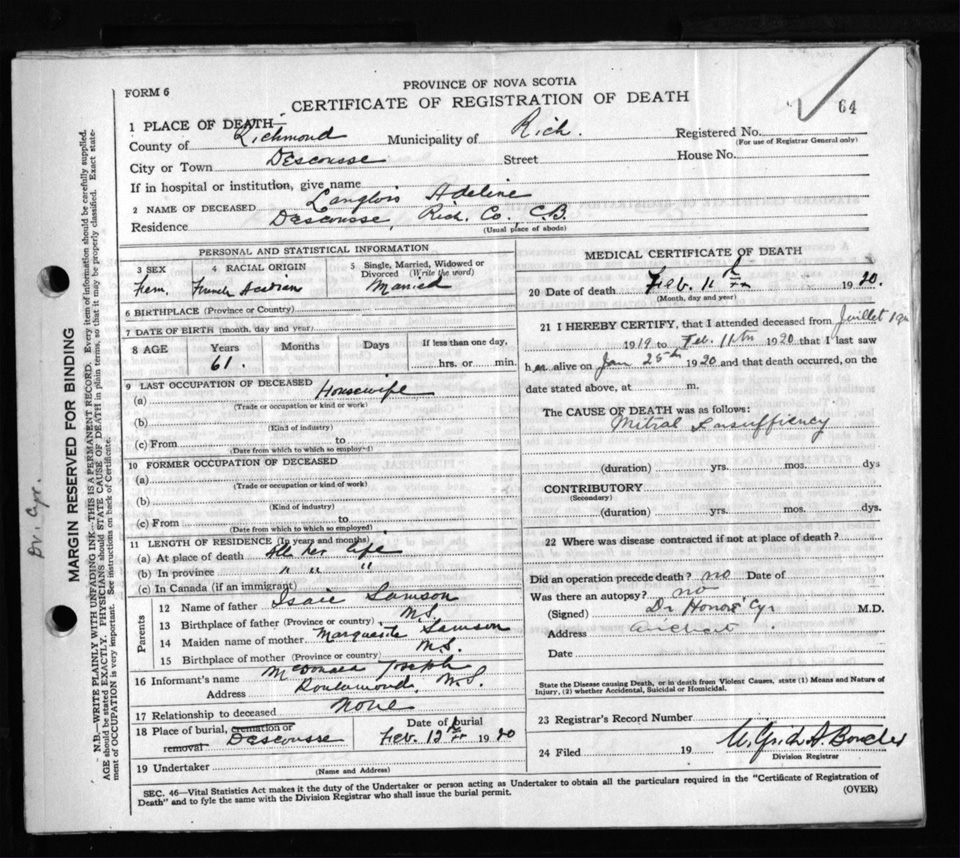 FORM 6
PROVINCE OF NOVA SCOTIA
CERTIFICATE OF REGISTRATION OF DEATH
64
1 PLACE OF DEATH—
County of Richmond Municipality of Rich. Registered No.
(For use of Registrar General only)
City or Town Descousse Street House No.
If in hospital or institution, give name
2 NAME OF DECEASED Langlois Adeline
Residence Descousse, Rich. Co, C.B.
(Usual place of abode)
PERSONAL AND STATISTICAL INFORMATION
3 SEX 4 RACIAL ORIGIN 5 Single, Married, Widowed or Divorced (Write the word)
Fem. French Acadian Married
6 BIRTHPLACE (Province or Country)
7 DATE OF BIRTH (month, day and year)
8 AGE Years Months Days If less than one day,
61. hrs. or min.
9 LAST OCCUPATION OF DECEASED
(a) Housewife
(Trade or occupation or kind or work)
(b)
(Kind of industry)
(c) From to
(Date from which to which so employed)
10 FORMER OCCUPATION OF DECEASED
(a)
(Trade or occupation or kind of work)
(b)
(Kind of industry)
(c) From to
(Date from which to which so employed)
11 LENGTH OF RESIDENCE (In years and months)
(a) At place of death All her life
(b) In province " " "
(c) In Canada (if an immigrant)
Parents
12 Name of father Isaie Samson
13 Birthplace of father (Province or country) N.S.
14 Maiden name of mother Marguerite Samson
15 Birthplace of mother (Province or country) N.S.
16 Informant's name McDonald Joseph
Address N.S.
17 Relationship to deceased None
18 Place of burial, cremation or removal Descousse
Date of burial Feb. 13th 1920
19 Undertaker
(Name and Address)
MEDICAL CERTIFICATE OF DEATH
20 Date of death Feb. 11th 1920.
(Month, day and year)
21 I HEREBY CERTIFY, that I attended deceased from Juillet
1919 to Feb. 11th 1920 that I last saw
her alive on Jan 25th 1920 and that death occurred, on the
date stated above, at m.
The CAUSE OF DEATH was as follows:
Mitral Insuffiency
(duration) yrs. mos. dys
CONTRIBUTORY
(Secondary)
(duration) yrs. mos. dys.
22 Where was disease contracted if not at place of death?
Did an operation precede death? no Date of
Was there an autopsy? no
(Signed) Dr Honoré Cyr M.D.
Address Arichat
Date
State the Disease causing Death, or in death from Violent Causes, state (1) Means and Nature of
Injury, (2) whether Accidental, Suicidal or Homicidal.
23 Registrar's Record Number
24 Filed 19
Division Registrar
SEC. 46—Vital Statistics Act makes it the duty of the Undertaker or person acting as Undertaker to obtain all the particulars required in the "Certificate of Registration of
Death" and to fyle the same with the Division Registrar who shall issue the burial permit.
(OVER)
Dr. Cyr.
MARGIN RESERVED FOR BINDING
N.B—WRITE PLAINLY WITH UNFADING INK—THIS IS A PERMANENT RECORD. Every item of information should be carefully supplied.
AGE should be stated EXACTLY. PHYSICIANS should STATE CAUSE OF DEATH in plain terms, so that it may be properly classified. Exact state-
ment of OCCUPATION is very important. See instructions on back of Certificate.